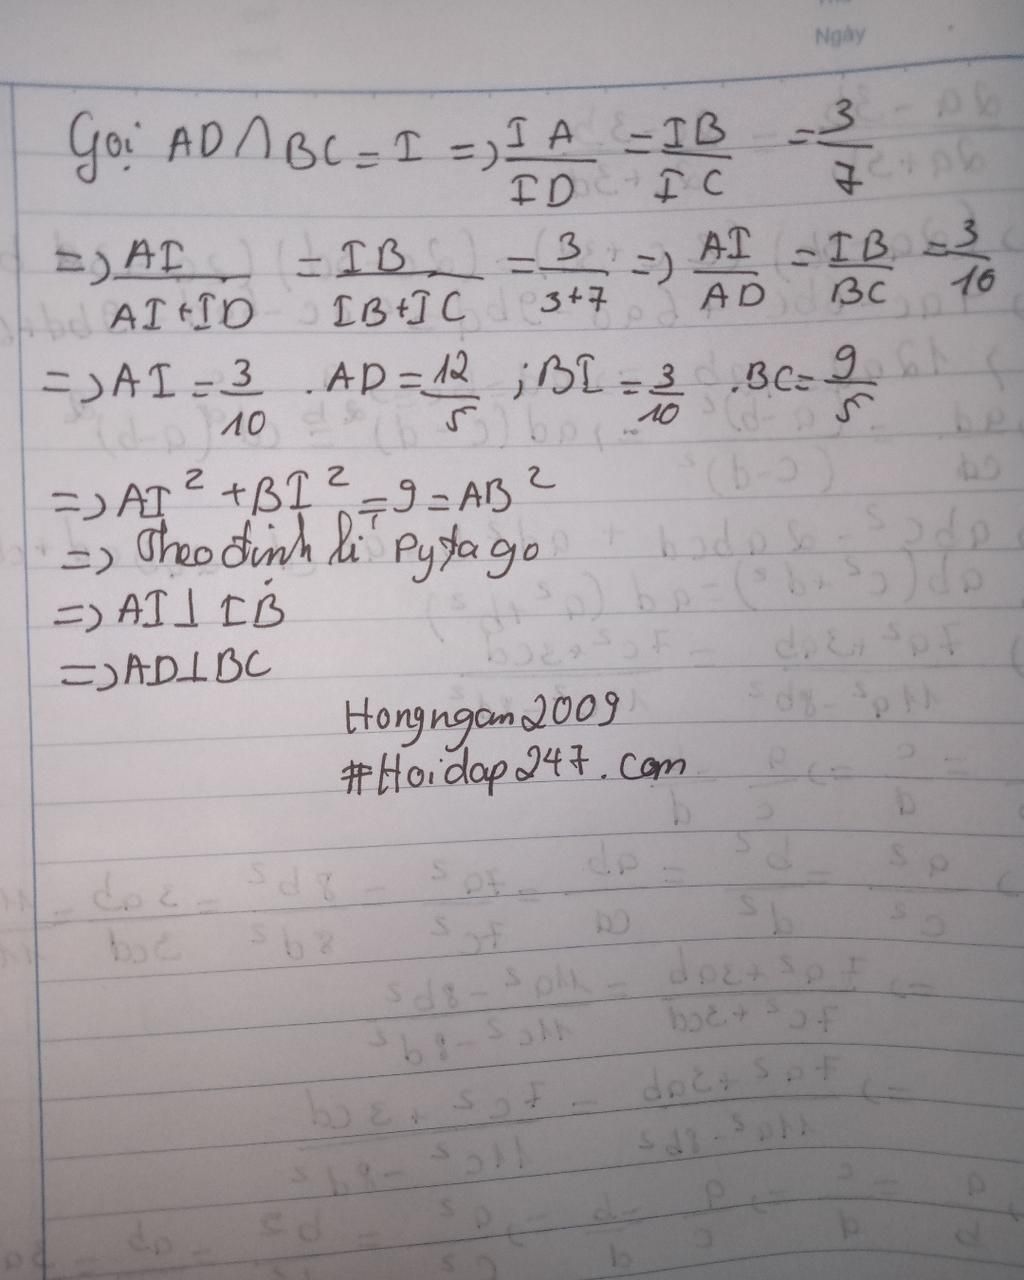 Ngày
Gọi AD∩BC = I => IA/ID = IB/IC = 3/7
=> AI/AI+ID = IB/IB+IC = 3/3+7 => AI/AD = IB/BC = 3/10
=> AI = 3/10 . AD = 12/5 ; BI = 3/10 . BC = 9/5
=> AI² + BI² = 9 = AB²
=> Theo định lí Pytago
=> AI⊥IB
=> AD⊥BC
Hongngan2009
#Hoidap247.com